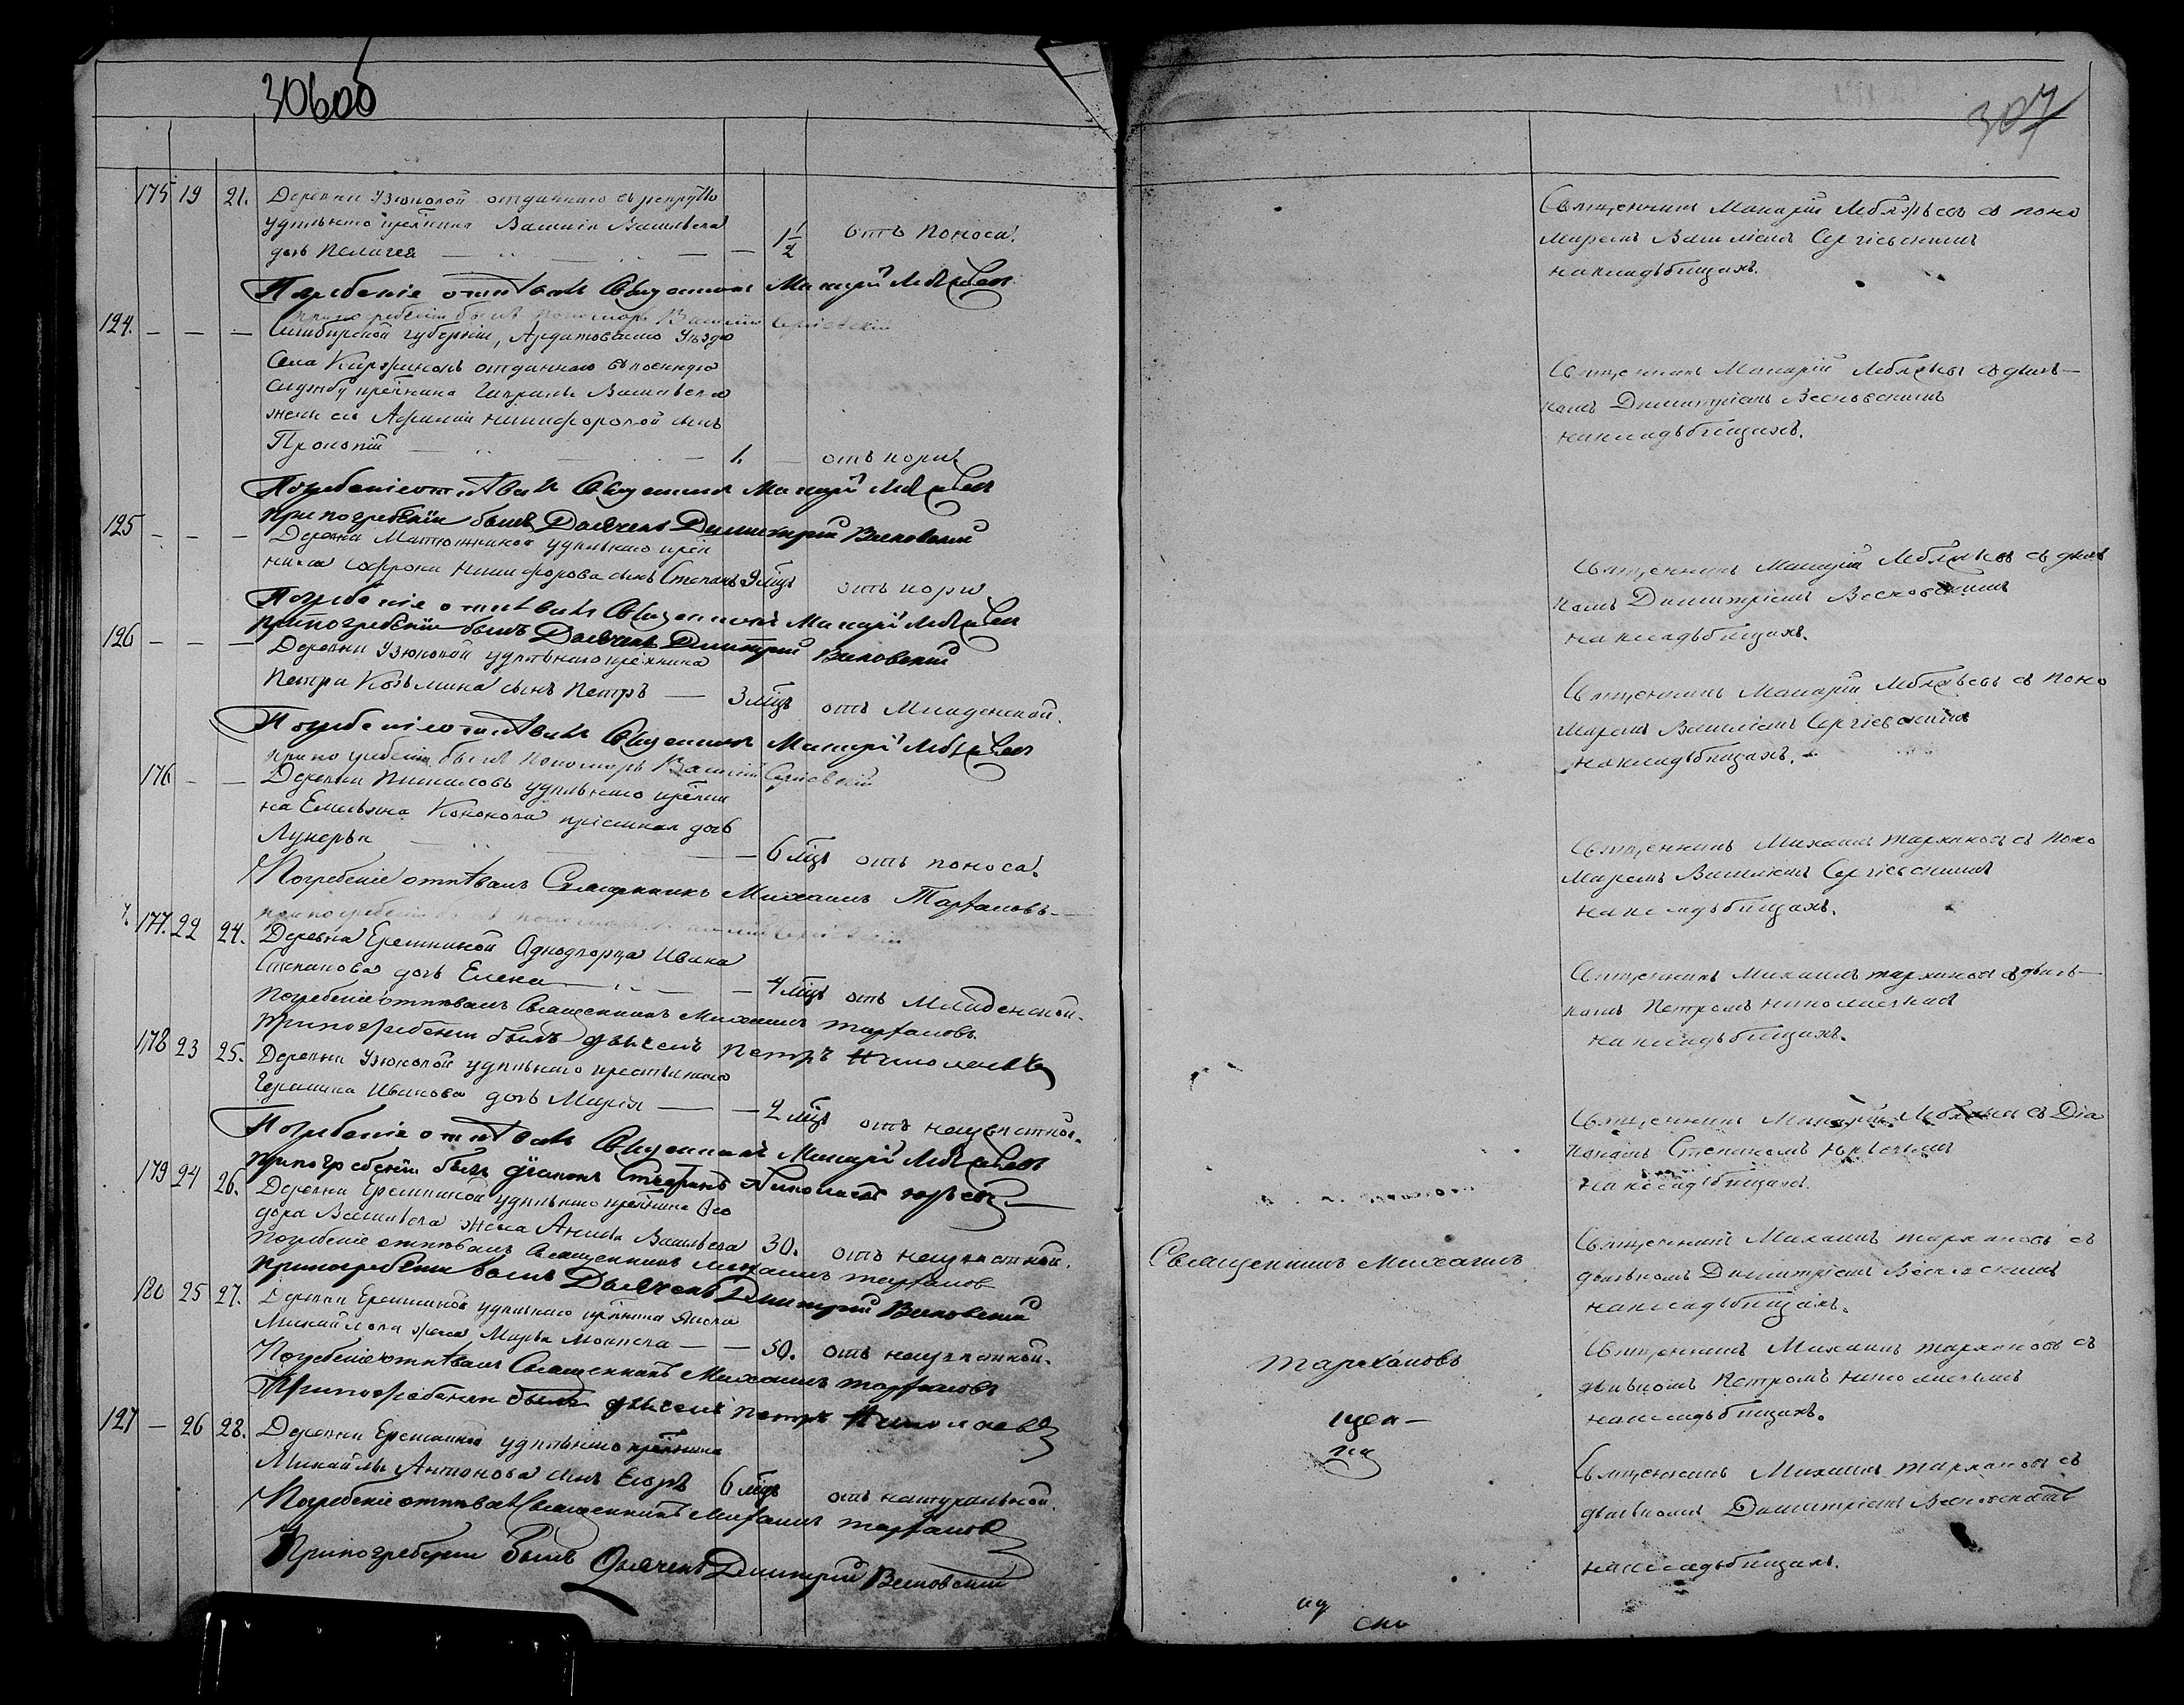 30606
307
175 19 21. Деревни Узюковой отданнаго въ рекруты
удѣльнаго крѣснина Василія Васильева
дочь Пелагея — 1 1/2 отъ поноса.
Погребеніе отпѣвалъ Священникъ Макарій
при погребеніи былъ пономарь Василій Сергіевскій
124. — — — Симбирской губерніи, Ардатовскаго уѣзда
Села отданнаго въ военную
службу крѣснина Гаврилы Васильева
жены его Никифоровой сынъ
Прокопій — 1. — отъ кори.
Погребеніе отпѣвалъ Священникъ Макарій
при погребеніи былъ Дьячекъ Димитрий
125 — — — Деревни Матюшкиной удѣльнаго крѣсн
нина Софрона Никифорова сынъ Степанъ 9 мцъ отъ кори
Погребеніе отпѣвалъ Священникъ Макарій
при погребеніи былъ Дьячекъ Димитрий
126 — — — Деревни Узюковой удѣльнаго крѣснина
Петра Козьмина сынъ Петръ — 3 мцъ отъ Младенской.
Погребеніе отпѣвалъ Священникъ Макарій
при погребеніи былъ пономарь Василій Сергіевскій
176 — — Деревни удѣльнаго крѣсни
на Емельяна Кононова дочь
Лукерья — 6 мцъ отъ поноса.
Погребеніе отпѣвалъ Священникъ Михаилъ Тархановъ
при погребеніи былъ пономарь Василій Сергіевскій
177. 22 24. Деревни Еремкиной Однодворца Ивана
Степанова дочь Елена — 4 мцъ отъ Младенской.
Погребеніе отпѣвалъ Священникъ Михаилъ Тархановъ
При погребеніи былъ дьячекъ Петръ Николаевъ
178 23 25. Деревни Узюковой удѣльнаго крестьянина
Герасима Иванова дочь Марія — 2 мцъ отъ неизвѣстной.
Погребеніе отпѣвалъ Священникъ Макарій
при погребеніи былъ діаконъ Стефанъ Николаевъ Юрьевъ
179 24 26. Деревни Еремкиной удѣльнаго крѣснина Ѳео
дора Васильева жена Васильева 30. отъ неизвѣстной.
Погребеніе отпѣвалъ Священникъ Михаилъ Тархановъ
При погребеніи былъ Дьячекъ Димитрий
180 25 27. Деревни Еремкиной удѣльнаго крѣснина Якова
Михайлова жена Марья — 50. отъ неизвѣстной.
Погребеніе отпѣвалъ Священникъ Михаилъ Тархановъ
При погребеніи былъ дьячекъ Петръ Николаевъ
127 — 26 28. Деревни Еремкиной удѣльнаго крѣснина
Михайлы Антонова сынъ Егоръ 6 мцъ отъ натуральной.
Погребеніе отпѣвалъ Священникъ Михаилъ Тархановъ
При погребеніи былъ Дьячекъ Димитрий
Священникъ Михаилъ
Тархановъ
Священникъ Макарій съ поно
маремъ Василіемъ Сергіевскимъ
на кладьбищахъ.
Священникъ Макарій съ дьяч–
комъ Димитріемъ
на кладьбищахъ.
Священникъ Макарій съ дьяч
комъ Димитріемъ
на кладьбищахъ.
Священникъ Макарій съ поно
маремъ Василіемъ Сергіевскимъ
на кладьбищахъ.
Священникъ Михаилъ Тархановъ съ поно
маремъ Василіемъ Сергіевскимъ
на кладьбищахъ.
Священникъ Михаилъ Тархановъ съ дьяч–
комъ Петромъ Николаевымъ
на кладьбищахъ.
Священникъ Макарій съ Діа
кономъ Степаномъ Юрьевымъ
на кладьбищахъ.
Священникъ Михаилъ Тархановъ съ
дьячкомъ Димитріемъ
на кладьбищахъ.
Священникъ Михаилъ Тархановъ съ
дьячкомъ Петромъ Николаевымъ
на кладьбищахъ.
Священникъ Михаилъ Тархановъ съ
дьячкомъ Димитріемъ
на кладьбищахъ.